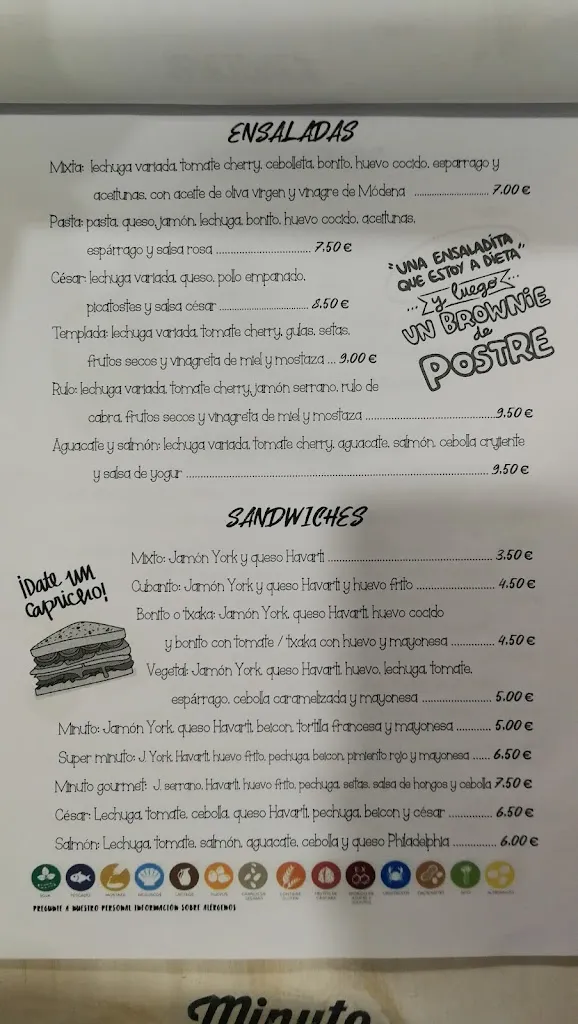 ENSALADAS
Mixta: lechuga variada, tomate cherry, cebolleta, bonito, huevo cocido, esparrago y
aceitunas, con aceite de oliva virgen y vinagre de Módena ........................ 7.00 €
Pasta: pasta, queso, jamón, lechuga, bonito, huevo cocido, aceitunas,
espárrago y salsa rosa ............................... 7,50 €
César: lechuga variada, queso, pollo empanado,
picatostes y salsa césar ............................. 8.50 €
Templada: lechuga variada, tomate cherry, gulas, setas,
frutos secos y vinagreta de miel y mostaza ... 9.00 €
Rulo: lechuga variada, tomate cherry, jamón serrano, rulo de
cabra, frutos secos y vinagreta de miel y mostaza ..........................................9.50 €
Aguacate y salmón: lechuga variada, tomate cherry, aguacate, salmón, cebolla crujiente
y salsa de yogur ........................................................................................... 9,50 €
"UNA ENSALADITA
QUE ESTOY A DIETA"
...y luego...
UN BROWNIE
de
POSTRE
SANDWICHES
¡Date un
capricho!
Mixto: Jamón York y queso Havarti .................................................. 3.50 €
Cubanito: Jamón York y queso Havarti y huevo frito ......................... 4.50 €
Bonito o txaka: Jamón York, queso Havarti, huevo cocido
y bonito con tomate / txaka con huevo y mayonesa ............. 4,50 €
Vegetal: Jamón York, queso Havarti, huevo, lechuga, tomate,
espárrago, cebolla caramelizada y mayonesa ...................... 5.00 €
Minuto: Jamón York, queso Havarti, beicon, tortilla francesa y mayonesa .......... 5.00 €
Super minuto: J. York, Havarti, huevo frito, pechuga, beicon, pimiento rojo y mayonesa ...... 6.50 €
Minuto gourmet: J. serrano, Havarti, huevo frito, pechuga, setas, salsa de hongos y cebolla 7.50 €
César: Lechuga, tomate, cebolla, queso Havarti, pechuga, beicon y césar ............. 6.50 €
Salmón: Lechuga, tomate, salmón, aguacate, cebolla y queso Philadelphia ............ 6.00 €
PREGUNTE A NUESTRO PERSONAL INFORMACIÓN SOBRE ALÉRGENOS
Minuto